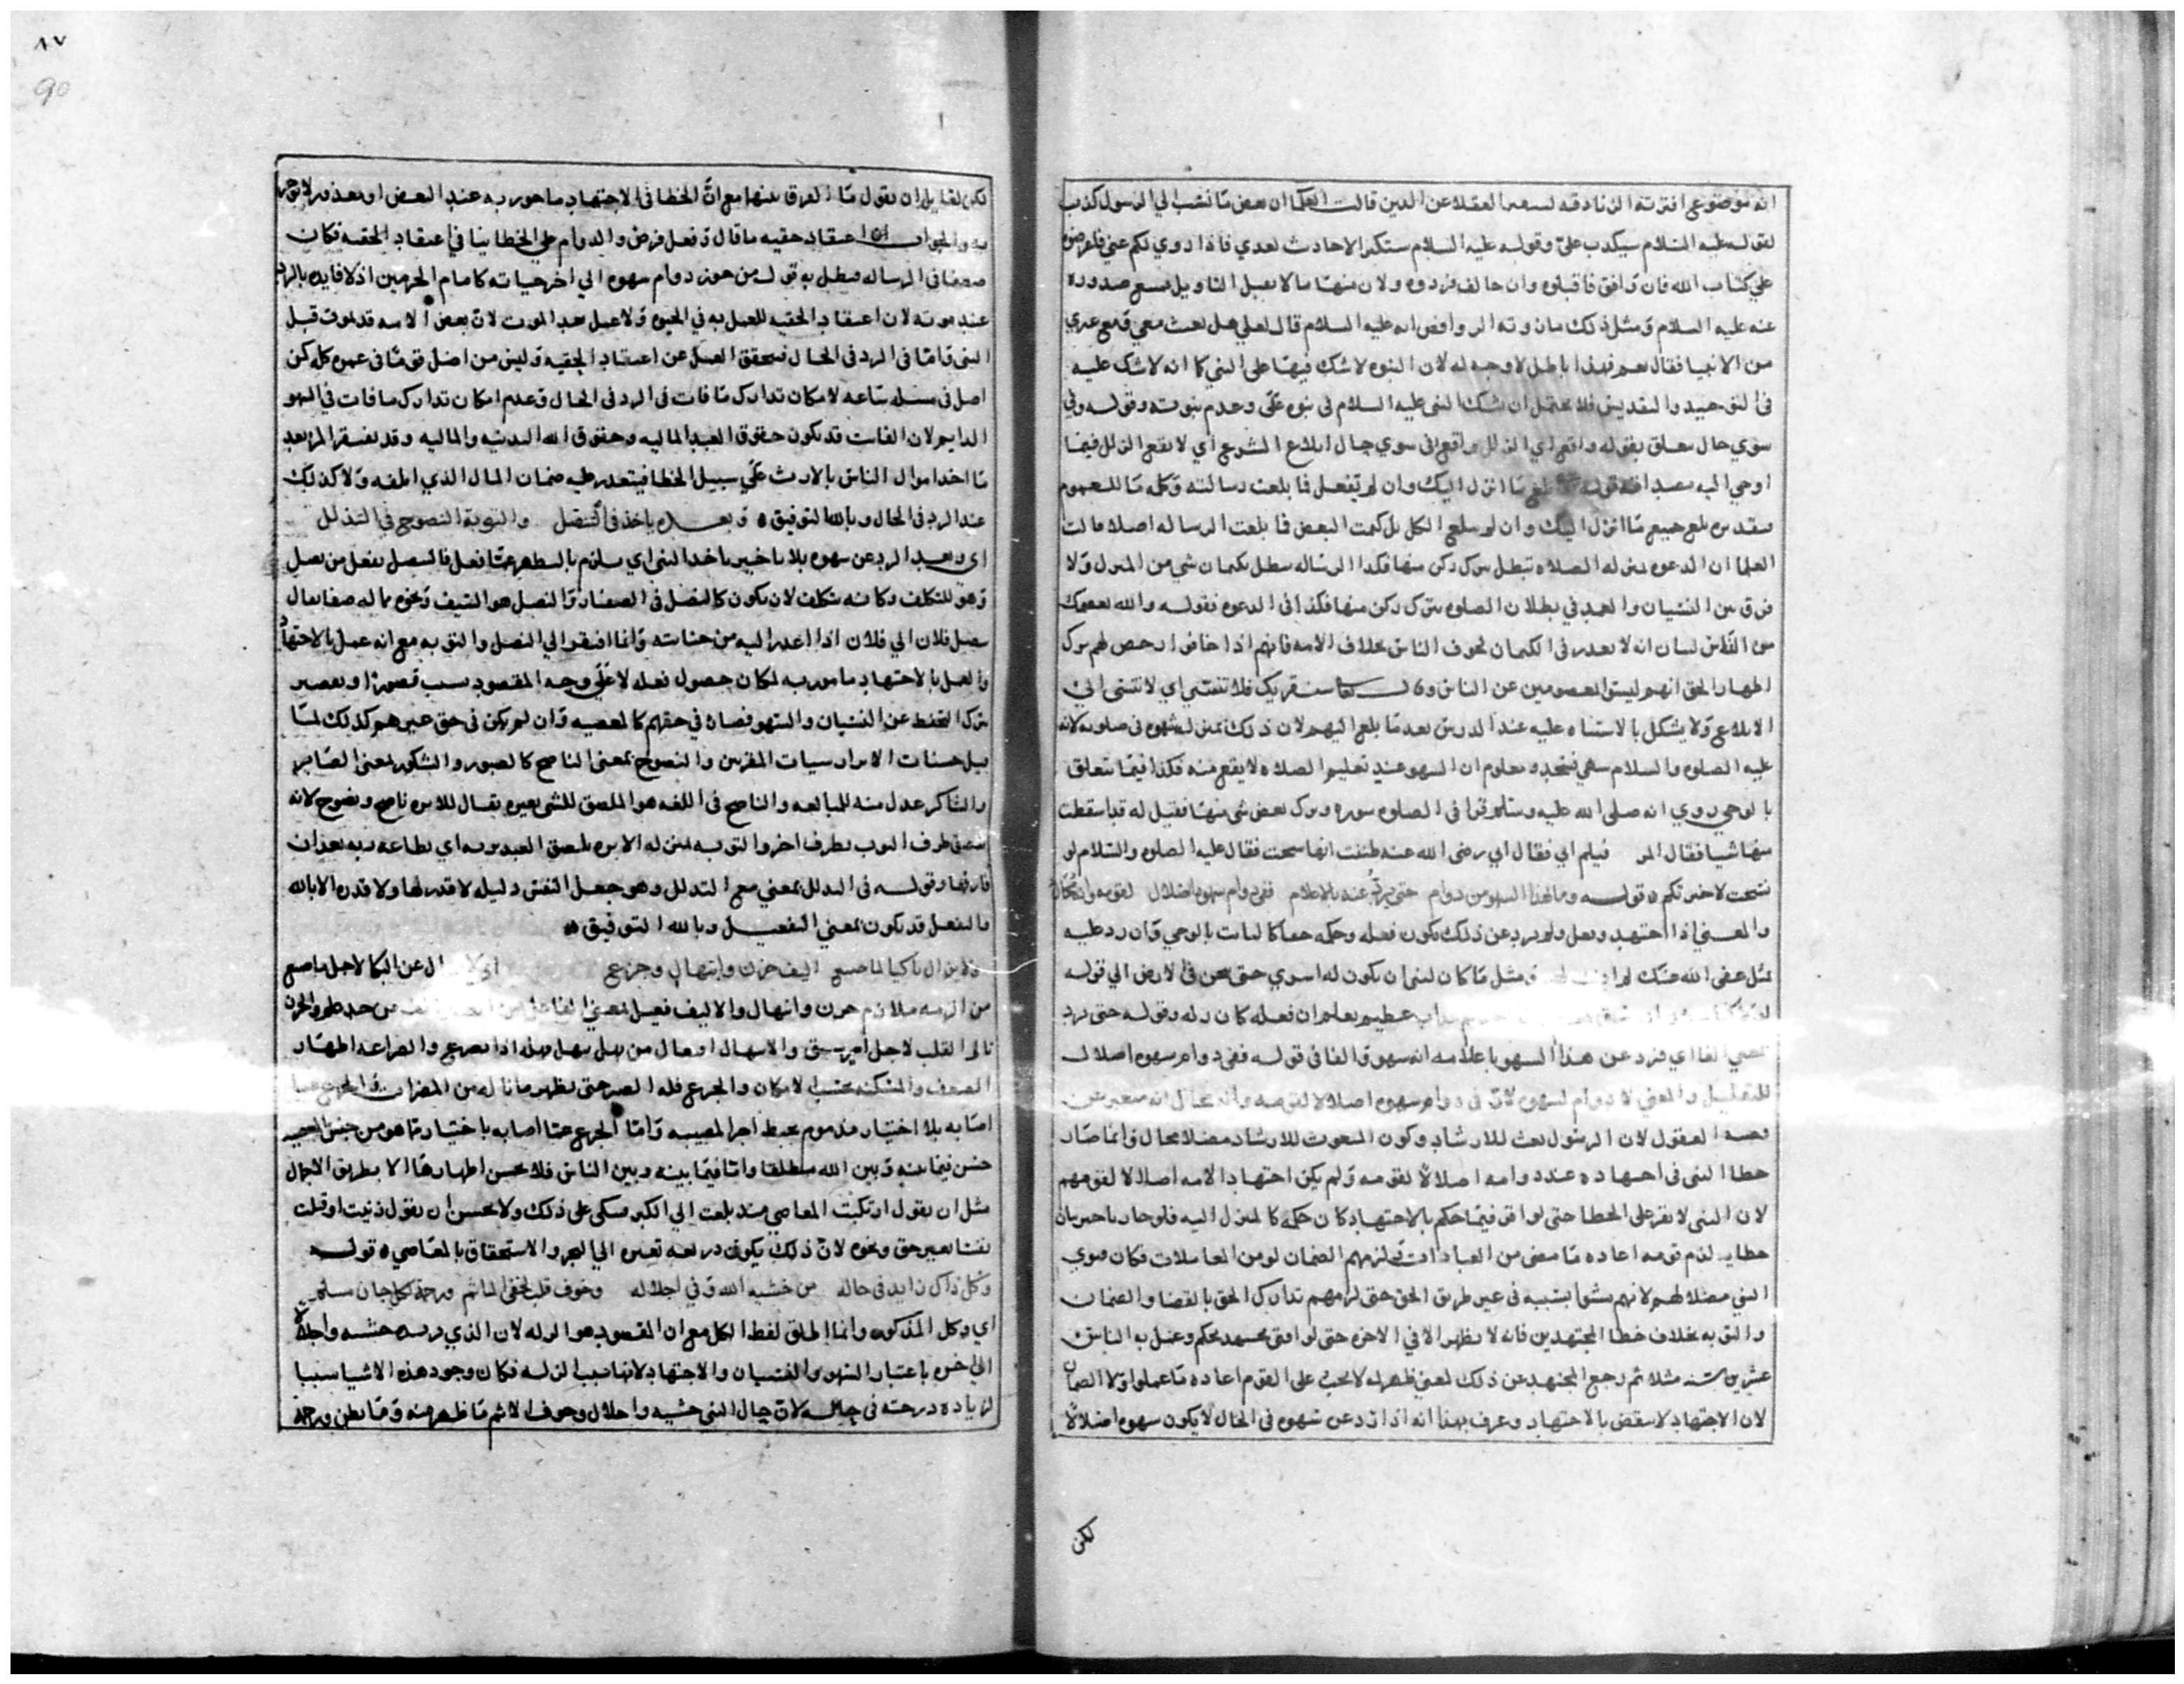 انه موضوع افترته الزنادقه العقلا عن الدين قالت العلما ان بعض ما نسب الي الرسول كذب
لقوله عليه السلام سيكذب علي وقوله عليه السلام ستكثر الاحاديث بعدي فاذا روي لكم عني فاعرضوه
علي كتاب الله فان وافق فاقبلوه وان خالف فردوه ولان منها ما لا يقبل التاويل صدوره
عنه عليه السلام ومثل ذلك الروافض انه عليه السلام قال لعلي هل بعث معي ومع غيري
من الانبيا فقال نعم فهذا باطل لا وجه له لان النبوه لا شك فيها على النبي كما انه لا شك عليه
في التوحيد والتقديس فلا يحتمل ان يشك النبي عليه السلام في نبوه علي وعدم نبوته وقوله وفي
سوي حال متعلق بقوله واقع اي الزلل واقع في سوي حال ابلاغ الشرع اي لا يقع الزلل فيما
اوحي اليه قوله بلغ ما انزل اليك وان لم تفعل فما بلغت رسالته وكلمه ما للعموم
بلغ جميع ما انزل اليك وان لم تبلغ الكل بل كتمت البعض فما بلغت الرساله اصلا قالت
العلما ان الدعوه بمنزله الصلاه تبطل بترك ركن منها فكذا الرساله تبطل بكتمان شي من المنزل ولا
فرق بين النسيان والعمد في بطلان الصلوه بترك ركن منها فكذا في الدعوه فقوله والله يعصمك
من الناس لبيان انه لا يعذر في الكتمان لخوف الناس بخلاف الامه فانهم اذا خافوا رخص لهم ترك
اظهار الحق انهم ليسوا المعصومين عن الناس وقال تعالى سنقريك فلا تنسى اي لا تنسى الى
الابلاغ ولا يشكل بالاشتباه عليه عند الدرس بعد ما بلغ اليهم لان ذلك بمنزله سهوه في صلوته لانه
عليه الصلوه والسلام سهى فسجد ومعلوم ان السهو عند تعليم الصلاه لا يقع منه فكذا فيما يتعلق
بالوحي روي انه صلى الله عليه وسلم قرا في الصلوه سوره وترك بعض شي منها فقيل له قد اسقطت
منها شيا فقال الم فيكم ابي فقال ابي رضى الله عنه ظننت انها نسخت فقال عليه الصلوه والسلام لو
نسخت لاخبرتكم ه قوله وما لهذا السهو من دوام حتى يرد عنه بالاعلام ففي دوام سهوه اضلال لقومه
والمعنى اذا اجتهد وفعل ولم يرد عن ذلك يكون فعله وحكمه حقا كالثابت بالوحي وان رد عليه
مثل عفى الله عنك لم ومثل ما كان لنبي ان يكون له اسرى حتى يثخن في الارض الي قوله
عظيم يعلم ان فعله كان زله وقوله حتى يرد
اي فيرد عن هذا السهو باعلامه انه سهو والفا في قوله ففي دوام سهوه اضلال
للتعليل والمعنى لا دوام لسهوه لان في دوام سهوه اضلالا لقومه وانه محال
العقول لان الرسول بعث للارشاد وكون المبعوث للارشاد مضلا محال وانما صار
خطا النبي في اجتهاده عند دوامه اضلالا لقومه ولم يكن اجتهاد الامه اضلالا لقومهم
لان النبي لا يقر على الخطا حتى لو اقر فيما حكم بالاجتهاد كان حكمه كالمنزل اليه فلو جاز تاخير بيان
خطايه لزم قومه اعاده ما مضى من العبادات ولزمهم الضمان لو من المعاملات فكان
النبي مضلا لهم لانهم مشوا بسببه في غير طريق الحق حتى لزمهم تدارك الحق بالقضا والضمان
والتوبه بخلاف خطا المجتهدين فانه لا يظهر الا في الاخره حتى لو افتى مجتهد بحكم وعمل به الناس
عشرين سنه مثلا ثم رجع المجتهد عن ذلك لمعنى ظهر له لا يجب على القوم اعاده ما عملوا ولا الضمان
لان الاجتهاد لا ينقض بالاجتهاد وعرف بهذا انه اذا رد عن سهوه في الحال لا يكون سهوه اضلالا
لكن
٨٧
90
لكن لقايل ان يقول ما الفرق بينهما مع ان الخطا في الاجتهاد ماجور به عند البعض او معذور
والجواب ان اعتقاد حقيه ما قال وفعل فرض والدوام على الخطا ينافي اعتقاد الحقيه فكان
في الرساله فبطل به قول من جوز دوام سهوه الي اخر حياته كامام الحرمين اذ لا فايده بالرد
عند موته لان اعتقاد الحقيه للعمل به في الحيوه ولا عمل بعد الموت لان بعض الامه قد يموت قبل
النبي واما في الرد في الحال فيتحقق العمل عن اعتقاد الحقيه وليس من اضل قوما في عمره كله كمن
اضل في مسئله ساعه لامكان تدارك ما فات في الرد في الحال وعدم امكان تدارك ما فات في السهو
الدايم لان الفايت قد يكون حقوق العبد الماليه وحقوق الله البدنيه والماليه وقد يفتقر المرء بعد
ما اخذ اموال الناس بالارث على سبيل الخطا فيتعذر عليه ضمان المال الذي اتلفه ولا كذلك
عند الرد في الحال وبالله التوفيق ه وبعده ياخذ في التنصل والتوبه النصوح في التذلل
اي وبعد الرد عن سهوه بلا تاخير ياخذ النبي اي يلزم بالتطهر عما فعل فالتنصل تفعل من نصل
وهو للتكلف وكانه يتكلف لان يكون كالنصل في الصفا والنصل هو السيف ونحوه مما له صفا يقال
تنصل فلان الي فلان اذا اعتذر اليه من جنايته وانما افتقر الي التنصل والتوبه مع انه عمل بالاجتهاد
والعمل بالاجتهاد مامور به لمكان حصول فعله لا على وجه المقصود بسبب قصور او تقصير
بترك التحفظ عن النسيان والسهو فصار في حقهم كالمعصيه وان لم يكن في حق غيرهم كذلك لما
قيل حسنات الابرار سيات المقربين والنصوح بمعنى الناصح كالصبور والشكور بمعنى الصابر
والشاكر عدل منه للمبالغه والناصح في اللغه هو الملصق للشي بغيره يقال للابره ناصح ونصوح لانه
طرف الثوب بطرف اخر والتوبه بمنزله الابره تلصق العبد بربه اي بطاعه ربه بعد ان
فارقها وقوله في التذلل بمعنى مع التذلل وهو جعل النفس ذليله لا قدر لها ولا قدره الا بالله
والتفعل قد يكون بمعنى التفعيل وبالله التوفيق ه
ولا يزال باكيا لما صنع اليف حزن وابتهال وجزع اي لا يزال عن البكا لاجل ما صنع
من الزله ملازم حزن وابتهال والاليف فعيل بمعنى الفاعل والحزن
تالم القلب لاجل امر سبق والابتهال افتعال من بهل يبهل بهله اذا تضرع والضراعه اظهار
الضعف والمسكنه بحسب الامكان والجزع قله الصبر حتى يظهر ما ناله من المضرات والجزع عما
اصابه بلا اختيار مذموم يحبط اجر المصيبه واما الجزع عما اصابه باختيار ما هو من جنس المعصيه
حسن فيما بينه وبين الله مطلقا واما فيما بينه وبين الناس فلا يحسن اظهارها الا بطريق الاجمال
مثل ان يقول ارتكبت المعاصي منذ بلغت الي الكبر يبكي على ذلك ولا يحسن ان يقول زنيت او قتلت
نفسا بغير حق ونحوه لان ذلك يكون ذريعه لغيره الي الهجر والاستحقاق بالمعاصي ه قوله
وكل ذاك زايد في حاله من خشيه الله وفي اجلاله وخوف قلب لخفي الماثم ورحمه لكل جان مسلم
اي وكل المذكور وانما اطلق لفظ الكل مع ان المقصود هو الزله لان الذي خشيه واجلالا
الي اخره باعتبار السهو والنسيان والاجتهاد لانها سبب الزله فكان وجود هذه الاشيا سببا
لزياده درجته في حاله لان حال النبي خشيه واجلال وخوف الاثم ما ظهر منه وما بطن ورحمه